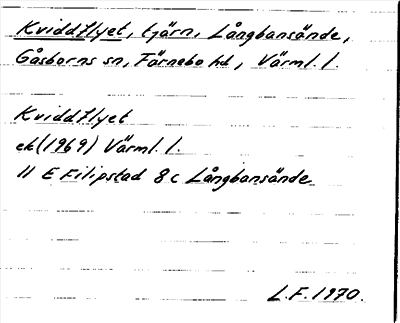 Kviddflyet, tjärn, Långbansände,
Gåsborns sn, Färnebo hd, Värml. l.
Kviddflyet
ek(1969) Värml. l.
11 E Filipstad 8 c Långbansände
L.F. 1970.